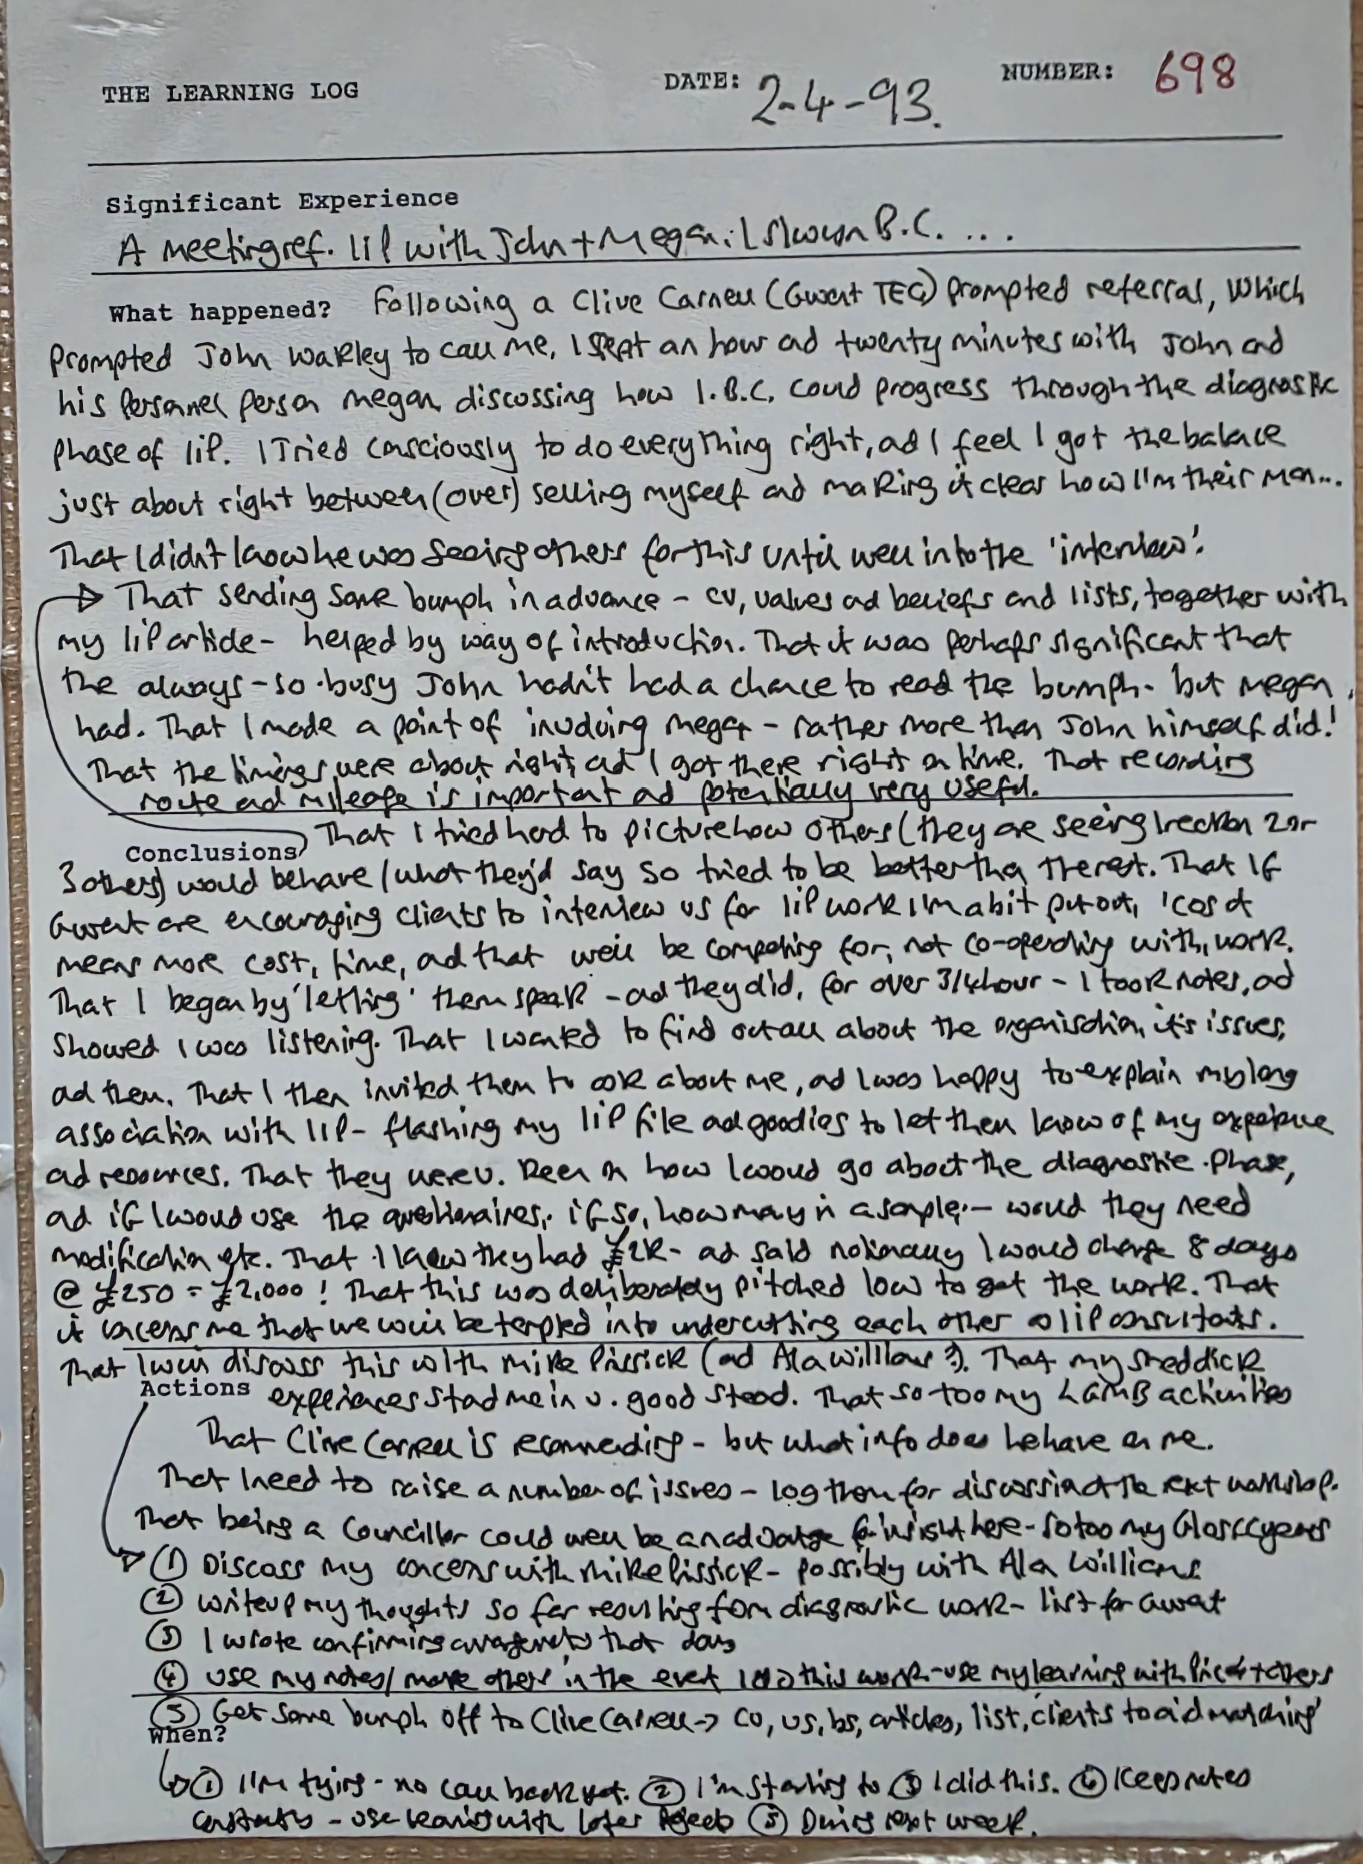 THE LEARNING LOG DATE: 2-4-93. NUMBER: 698
Significant Experience
A meeting ref. IIP with John + Megan: Islwyn B.C. ....
What happened? Following a Clive Carnell (Gwent TEC) prompted referral, which
prompted John Warley to call me, I spent an hour and twenty minutes with John and
his personnel person Megan, discussing how I.B.C. could progress through the diagnostic
phase of IIP. I tried consciously to do everything right, and I feel I got the balance
just about right between (over) selling myself and making it clear how I'm their man...
That I didn't know he was seeing others for this until well into the 'interview'.
That sending some bumph in advance - CV, values and beliefs and lists, together with
my IIP article - helped by way of introduction. That it was perhaps significant that
the always-so-busy John hadn't had a chance to read the bumph - but Megan
had. That I made a point of involving Megan - rather more than John himself did!
That the timings were about right, and I got there right on time. That recording
route and mileage is important and potentially very useful.
Conclusions That I tried hard to picture how others (they are seeing I reckon 2 or
3 others) would behave / what they'd say so tried to be better than the rest. That if
Gwent are encouraging clients to interview us for IIP work I'm a bit put out, 'cos it
means more cost, time, and that we'll be competing for, not co-operating with, work.
That I began by 'letting' them speak - and they did, for over 3/4 hour - I took notes, and
showed I was listening. That I wanted to find out all about the organisation, it's issues,
and them. That I then invited them to ask about me, and I was happy to explain my long
association with IIP - flashing my IIP file and goodies to let them know of my experience
and resources. That they were v. keen on how I would go about the diagnostic phase,
and if I would use the questionnaires, if so, how many in a sample - would they need
modification etc. That I knew they had £2K - and said normally I would charge 8 days
@ £250 = £2,000! That this was deliberately pitched low to get the work. That
it concerns me that we will be tempted into undercutting each other as IIP consultants.
That I will discuss this with Mike Pissick (and Alan Williams?). That my Sheddick
Actions experiences stand me in v. good stead. That so too my LAMB activities
That Clive Carnell is recommending - but what info does he have on me.
That I need to raise a number of issues - log them for discussion at the next workshop.
That being a Councillor could well be an advantage for insight here - so too my Glos CC years
(1) Discuss my concerns with Mike Pissick - possibly with Alan Williams
(2) Write up my thoughts so far resulting from diagnostic work - list for Gwent
(3) I wrote confirming arrangements that day
(4) Use my notes / make others in the event I do this work - use my learning with and others
(5) Get some bumph off to Clive Carnell → CV, vs, bs, articles, list, clients to aid matching
When?
(1) I'm trying - no call back yet. (2) I'm starting to (3) I did this. (4) Keep notes
constantly - use learning with later (5) During next week.